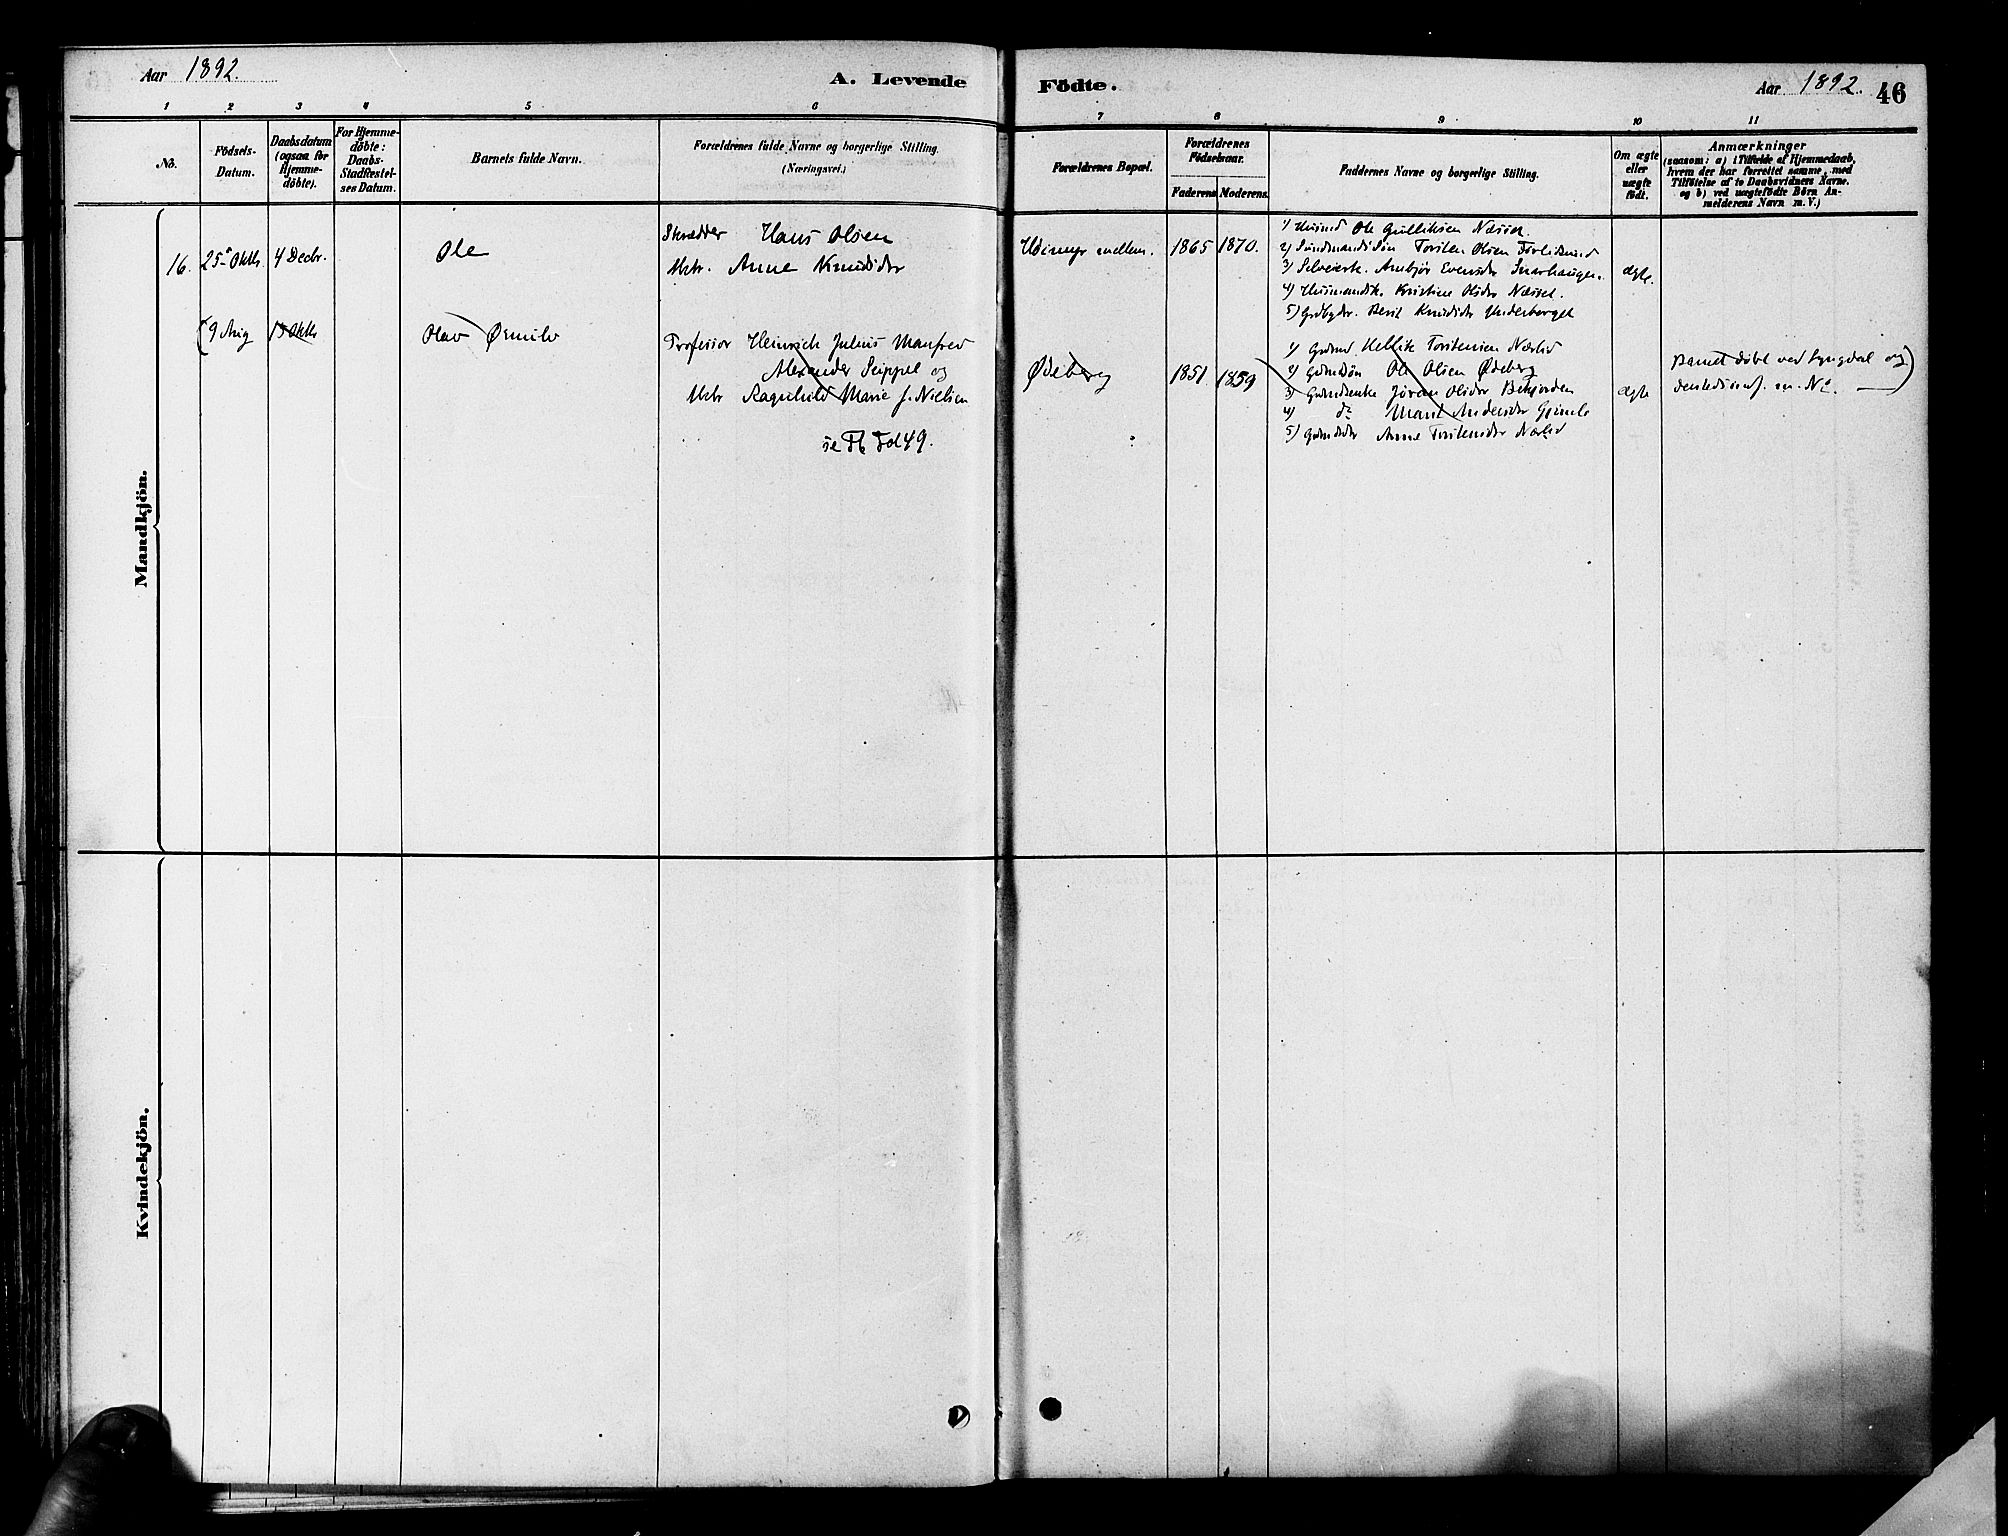 Aar 1892.
A. Levende
Födte.
Aar 1892. 46
1 2 3 4 5 6 7 8 9 10 11
No.
Födsels-
Datum.
Daabsdatum
(ogsaa for
Hjemme-
døbte).
For Hjemme-
döbte:
Daabs-
Stadfæstel-
ses Datum.
Barnets fulde Navn.
Forældrenes fulde Navne og borgerlige Stilling.
(Næringsvei.)
Forældrenes Bopæl.
Forældrenes
Födselsaar.
Faderens Moderens.
Faddernes Navne og borgerlige Stilling.
Om ægte
eller
uægte
födt.
Anmærkninger
(saasom: a) i Tilfælde af Hjemmedaab,
hvem der har forrettet samme, med
Tilföielse af to Daabsvidners Navne.
og b) ved uægtefödte Börn An-
melderens Navn m. V.)
Mandkjön.
16. 25 Oktb. 4 Decbr.
Ole
Skrædder Hans Olsen
Hstr. Anne Knudsdtr
mellem.
1865 1870.
1) Husmd Ole Gulliksen Næsset.
2) Torsten Olsen
3) Selveierk. Ambjør Evensdtr Snarhaugen.
4) Husmandsk. Kristine Olsdtr Næsset.
5) Berit Knudsdtr Underberget
ægte.
(9 Aug 15 Oktb
Olav Ørnulv
Professor Heinrich Julius Manfred
Alexander Seippel og
Hstr Ragnhild Marie f. Nielsen
se Fb Fol 49.
Ødeberg
1851. 1859
1) Gaardmd Hellik Torstensen Nærlid
2) Gdmdsøn Ole Olsen Ødeberg
3) Gdmdsenke Jøran Olsdtr Bekjorden
4) do Marit Andersdtr
5) Gdmdsdtr Anne Torstensdtr Nærlid
ægte
Barnet døbt ved Lyngdal og
Kvindekjön.